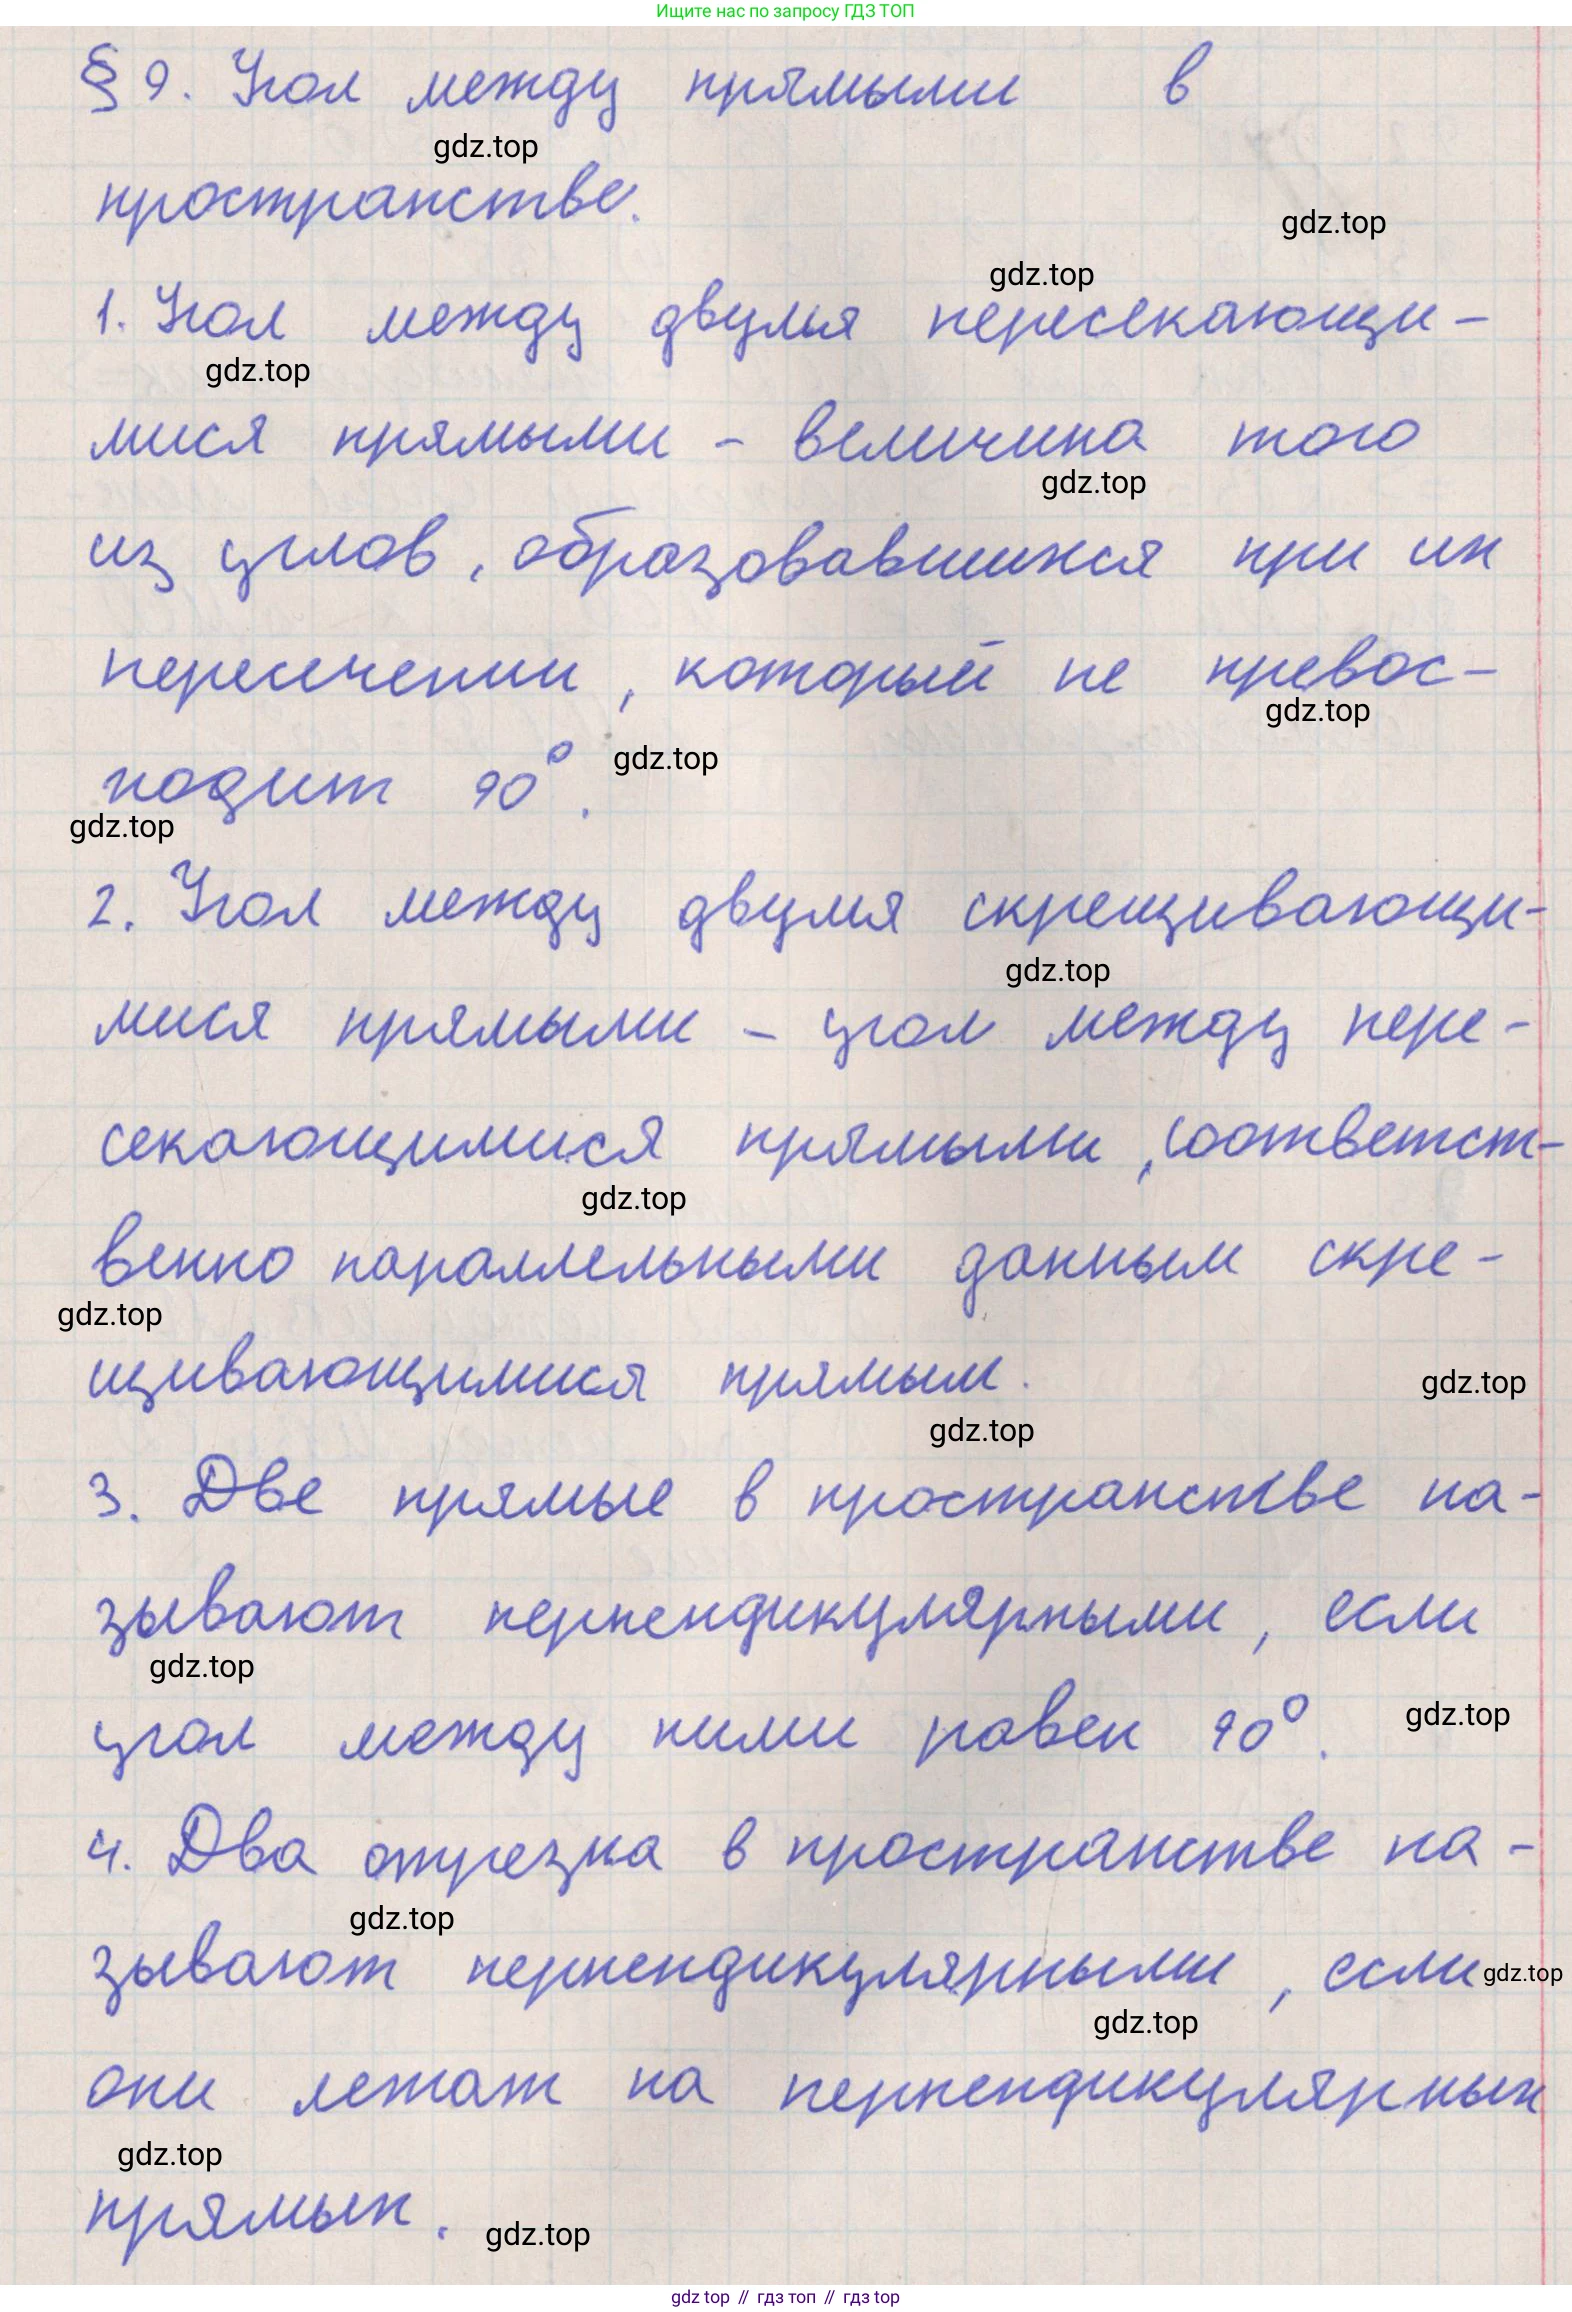 Ищите нас по запросу ГДЗ ТОП
§ 9. Угол между прямыми в
gdz.top
пространстве.
gdz.top
gdz.top
1. Угол между двумя пересекающи-
gdz.top
мися прямыми - величина того
gdz.top
из углов, образовавшихся при их
пересечении, который не превос-
gdz.top
ходит 90°.
gdz.top
gdz.top
2. Угол между двумя скрещивающи-
gdz.top
мися прямыми - угол между пере-
секающимися прямыми, соответст-
gdz.top
венно параллельными данным скре-
gdz.top
щивающимися прямым.
gdz.top
gdz.top
3. Две прямые в пространстве на-
зывают перпендикулярными, если
gdz.top
угол между ними равен 90°.
gdz.top
4. Два отрезка в пространстве на-
gdz.top
зывают перпендикулярными, если
gdz.top
gdz.top
они лежат на перпендикулярных
gdz.top
прямых.
gdz.top
gdz top // гдз топ // гдз top